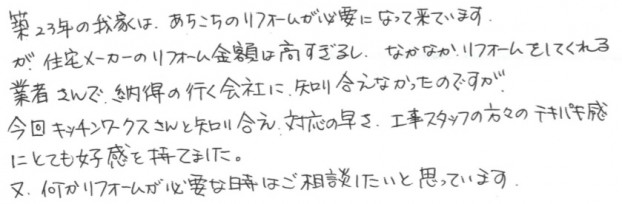 築23年の我家は、あちこちのリフォームが必要になって来ています.
が、住宅メーカーのリフォーム金額は高すぎるし、なかなか、リフォームをしてくれる
業者さんで、納得の行く会社に、知り合えなかったのですが、
今回キッチンワークスさんと知り合え、対応の早さ、工事スタッフの方々のテキパキ感
にとても好感を持てました。
又、何かリフォームが必要な時はご相談したいと思っています.